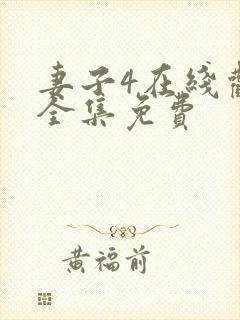 妻子4在线
全集免费
黄福前